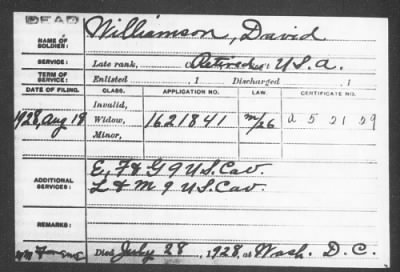 DEAD
NAME OF SOLDIER: Williamson, David
SERVICE: Late rank, Retired U.S.A.
TERM OF SERVICE: Enlisted , 1 Discharged , 1
DATE OF FILING. CLASS. APPLICATION NO. LAW. CERTIFICATE NO.
Invalid,
1928, Aug 18 Widow, 1621841 m/26 a 5 21 59
Minor,
ADDITIONAL SERVICES: E, F & G 9 U.S. Cav.
L & M 9 U.S. Cav.
REMARKS:
Died July 28, 1928, at Wash. D.C.